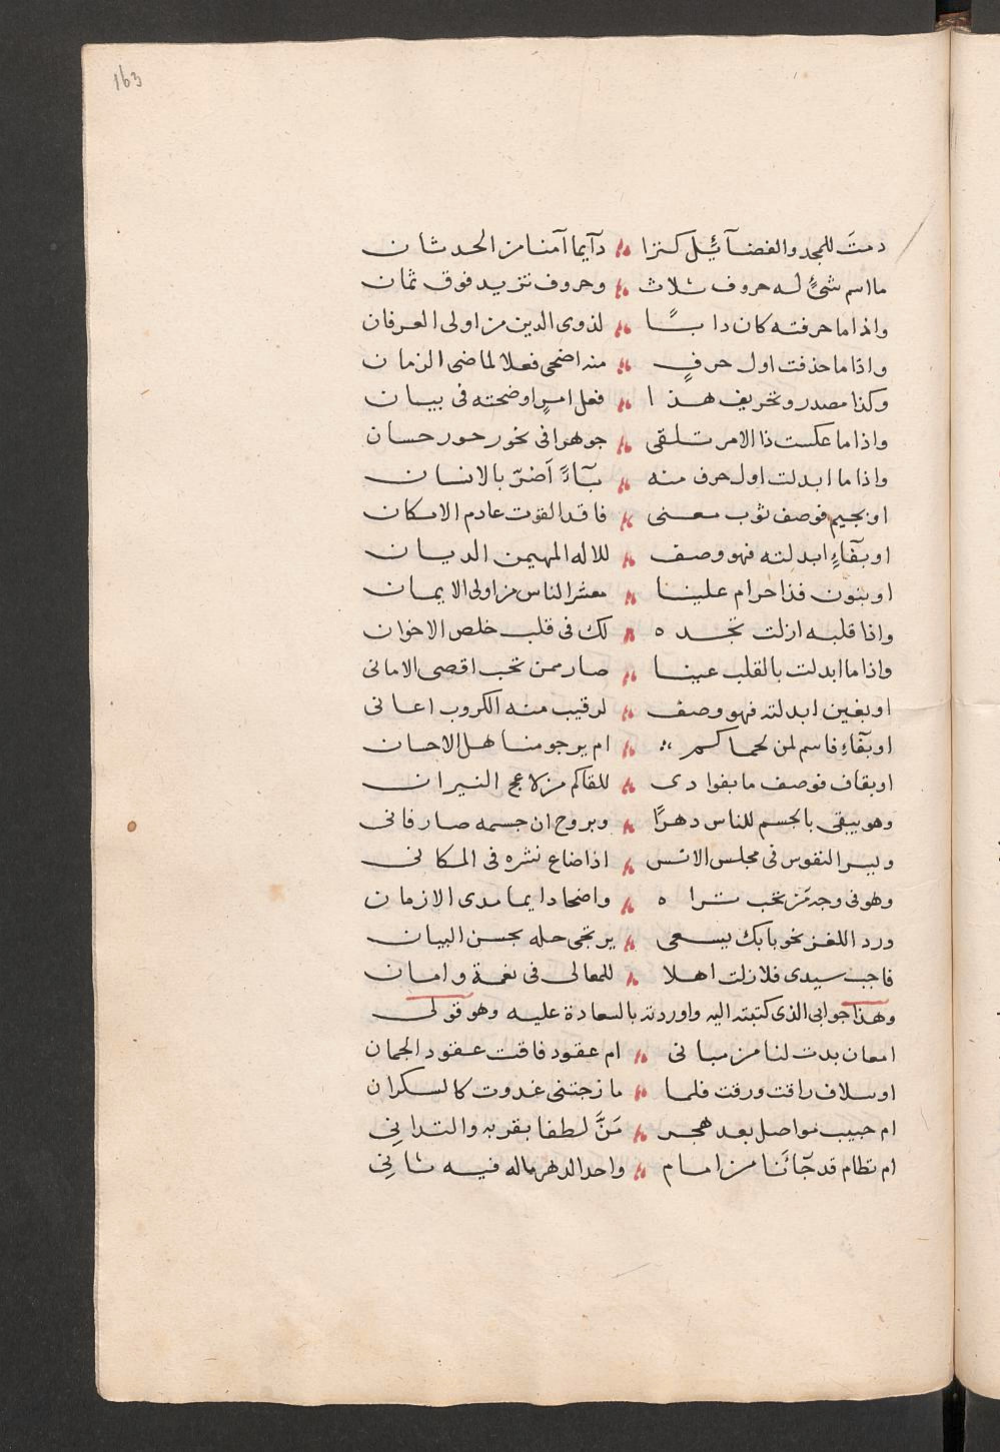 163
دمتَ للمجد والفضآئِل كنزا دآيما آمنا من الحدثان
ما اسم شئٍ له حروف ثلاث وحروف تزيد فوق ثمان
واذا ما حرفته كان دابًا لذوى الدين من اولى العرفان
واذا ما حذفت اول حرفٍ منه اضحى فعلا لماضى الزمان
وكذا مصدر وتحريف هذا فعل امرٍ اوضحته فى بيان
واذا ما عكست ذا الامر تلقى جوهرا فى نحور حور حسان
واذا ما ابدلت اول حرف منه بآءً اَضرّ بالانسان
او بجيم فوصف ثوب معنى فاقد القوت عادم الامكان
او بقآءٍ ابدلته فهو وصف للاله المهيمن الديان
او بنون فذا حرام علينا معشر الناس من اولى الايمان
واذا قلبه ازلت تجده لك فى قلب خلص الاخوان
واذا ما ابدلت بالقلب عينا صار ممن تحب اقصى الامانى
او بغين ابدلته فهو وصف لرقيب منه الكروب اعانى
او بقآءٍ فاسم لمن لحماكم ام يرجو منا هل الاحسان
او بقاف فوصف ما بفوادى للقاكم من لاعج النيران
وهو يبقى بالجسم للناس دهرًا وبروح ان جسمه صار فانى
ويسر النفوس فى مجلس الانس اذا ضاع نشره فى المكانى
وهو فى وجه مَن تحب تراه واضحا دايما مدى الازمان
ورد اللغز نحو بابك يسعى يرتجى حله بحسن البيان
فاجب سيدى فلا زلت اهلا للمعالى فى نعمة وامان
وهذا جوابى الذى كتبته اليه واوردته بالسعادة عليه وهو قولى
امعان بدت لنا من مبانى ام عقود فاقت عقود الجمان
او سلاف راقت ورقت فلما مازجتنى غدوت كالسكران
ام حبيب مواصل بعد هجر مَنَّ لطفا بقربه والتدانِى
ام نظام قد جآئنَا من امام واحد الدهر ماله فيه ثانِى